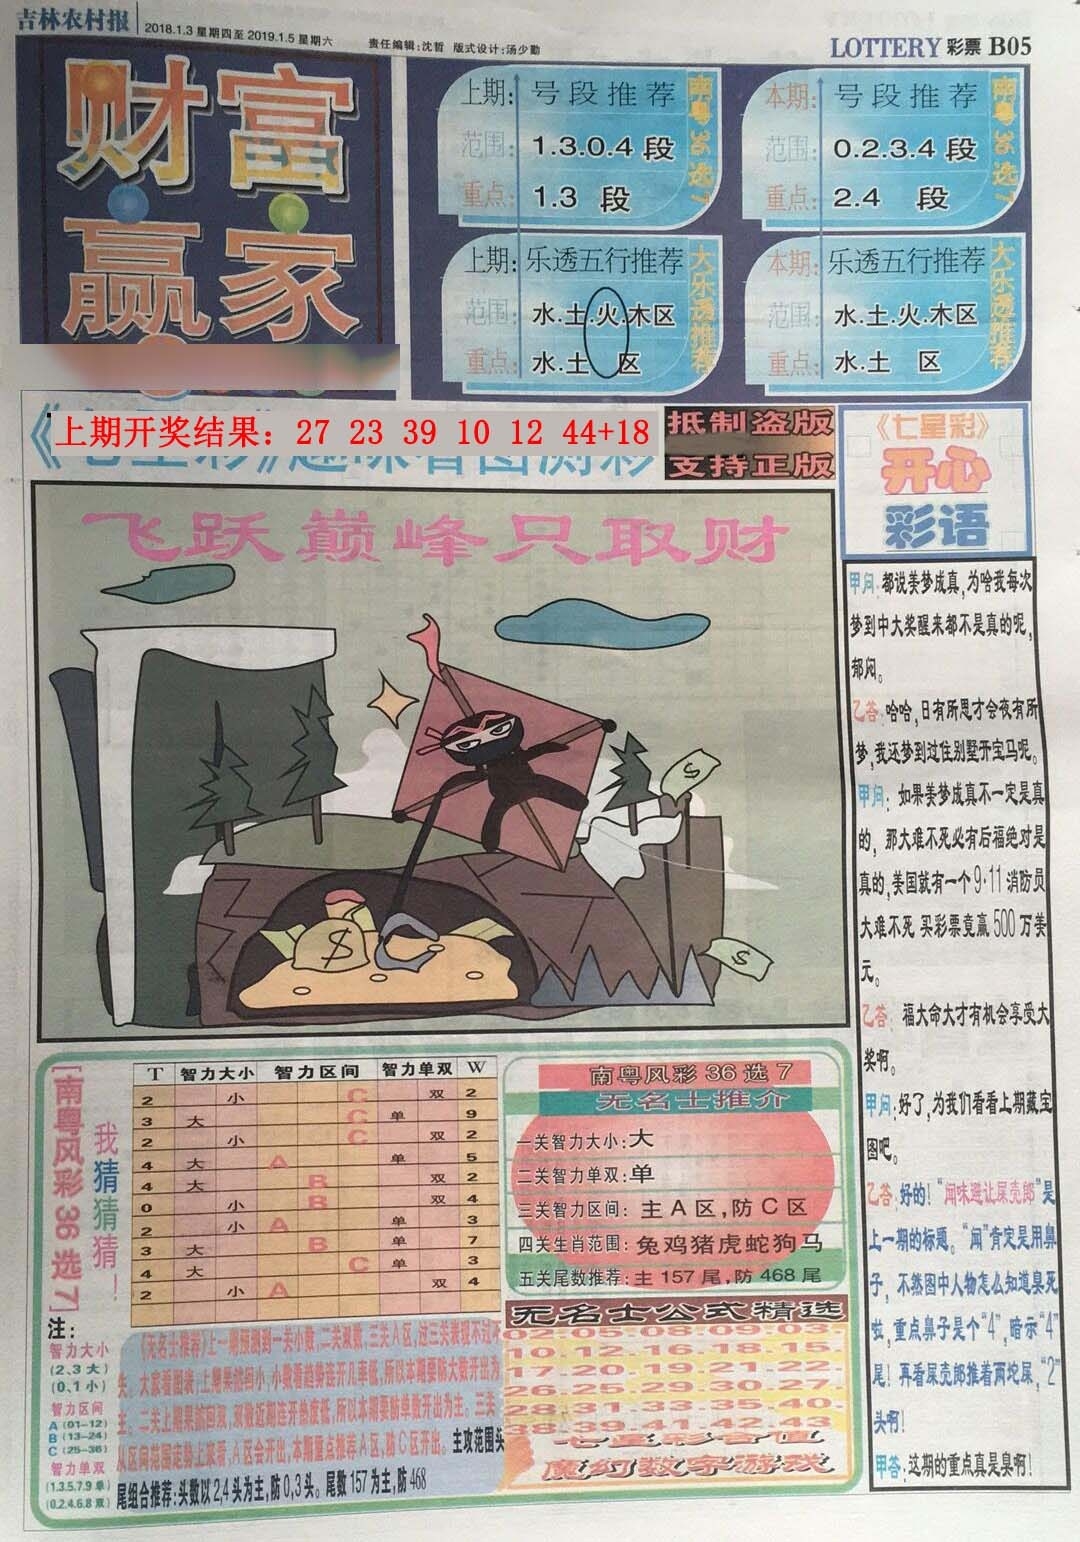 吉林农村报
2018.1.3 星期四至 2019.1.5 星期六
责任编辑:沈哲 版式设计:汤少勤
LOTTERY 彩票 B05
财富
赢家
上期: 号段推荐
范围: 1.3.0.4 段
重点: 1.3 段
南粤36选7
本期: 号段推荐
范围: 0.2.3.4 段
重点: 2.4 段
南粤36选7
上期: 乐透五行推荐
范围: 水.土.火.木区
重点: 水.土 区
大乐透推荐
本期: 乐透五行推荐
范围: 水.土.火.木区
重点: 水.土 区
大乐透推荐
上期开奖结果: 27 23 39 10 12 44+18
抵制盗版
支持正版
飞跃巅峰只取财
$
$
$
《七星彩》
开心
彩语
甲问:都说美梦成真,为啥我每次
梦到中大奖醒来都不是真的呢,
郁闷。
乙答:哈哈,日有所思才会夜有所
梦,我还梦到过住别墅开宝马呢。
甲问: 如果美梦成真不一定是真
的, 那大难不死必有后福绝对是
真的,美国就有一个9·11消防员
大难不死 买彩票竟赢500万美
元。
乙答: 福大命大才有机会享受大
奖啊。
甲问:好了,为我们看看上期藏宝
图吧。
乙答:好的!“闻味避让屎壳郎”是
上一期的标题。“闻”肯定是用鼻
子, 不然图中人物怎么知道臭死
啦,重点鼻子是个“4”,暗示“4”
尾!再看屎壳郎推着两坨屎,“2”
头啊!
甲答:这期的重点真是臭啊!
[南粤风彩36选7]
我猜猜猜!
T 智力大小 智力区间 智力单双 W
2 小 C 双 2
3 大 C 单 9
2 小 C 双 2
4 大 A 单 5
4 大 B 双 2
0 小 B 双 4
2 小 A 单 3
3 大 B 单 7
4 大 C 单 3
2 小 A 双 4
注:
智力大小
(2.3大)
(0.1小)
智力区间
A (01-12)
B (13-24)
C (25-36)
智力单双
(1.3.5.7.9单)
(0.2.4.6.8双)
主攻范围头
尾组合推荐:头数以2,4头为主,防0,3头。尾数157为主,防468
南粤风彩36选7
无名士推介
一关智力大小:大
二关智力单双:单
三关智力区间: 主A区,防C区
四关生肖范围: 兔鸡猪虎蛇狗马
五关尾数推荐:主157尾,防468尾
无名士公式精选
02-05-08-09-03-
10-12-16-18-15-
17-20-19-21-22-
26-25-29-30-27-
28-31-33-35-40-
38-39-41-42-43
七星彩奇值
魔幻数字游戏